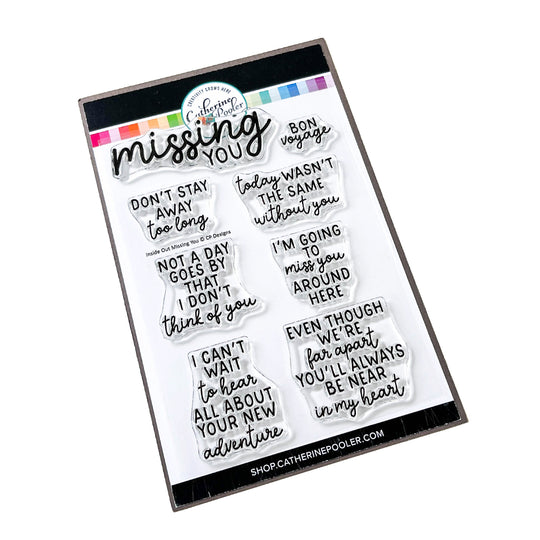 CREATIVITY GROWS HERE
Catherine
Pooler
missing
YOU
BON
voyage
DON'T STAY
AWAY
too long
today WASN'T
THE SAME
without you
Inside Out Missing You © CP Designs
NOT A DAY
GOES BY
THAT
I DON'T
think of you
I'M GOING
TO
miss you
AROUND
HERE
I CAN'T
WAIT
to hear
ALL ABOUT
YOUR NEW
adventure
EVEN THOUGH
WE'RE
far apart
YOU'LL ALWAYS
BE NEAR
in my heart
SHOP.CATHERINEPOOLER.COM